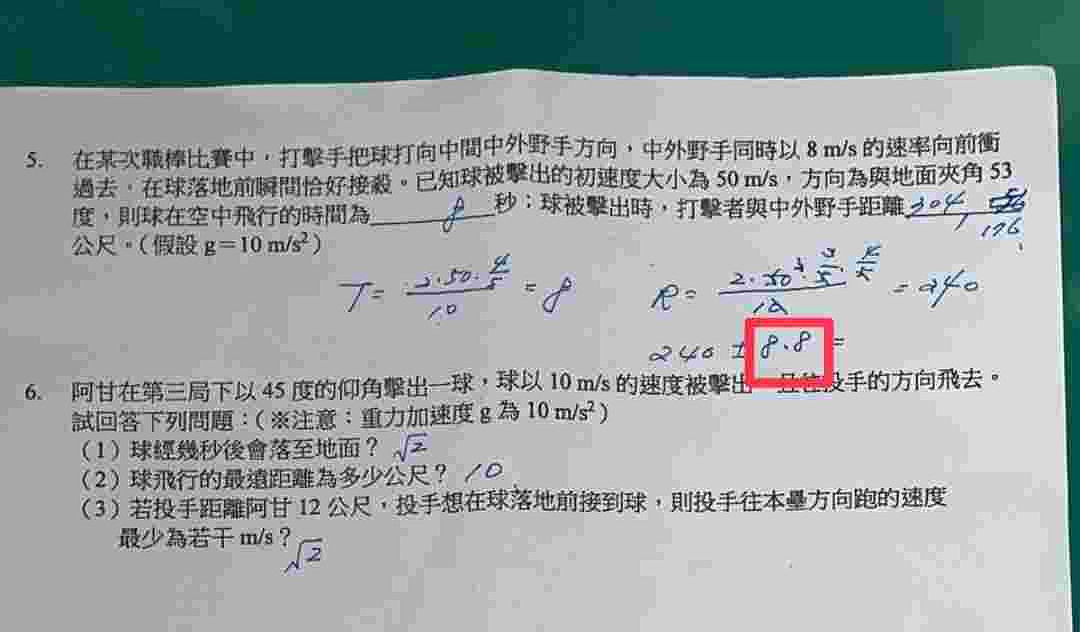 5. 在某次職棒比賽中，打擊手把球打向中間中外野手方向，中外野手同時以 8 m/s 的速率向前衝
過去，在球落地前瞬間恰好接殺。已知球被擊出的初速度大小為 50 m/s，方向為與地面夾角 53
度，則球在空中飛行的時間為 8 秒；球被擊出時，打擊者與中外野手距離 304,
176
公尺。（假設 g＝10 m/s²）
T = 2·50·4/5 / 10 = 8 R = 2·50²·3/5·4/5 / 10 = 240
240 ± 8·8 =
6. 阿甘在第三局下以 45 度的仰角擊出一球，球以 10 m/s 的速度被擊出 投手的方向飛去。
試回答下列問題：（※注意：重力加速度 g 為 10 m/s²）
（1）球經幾秒後會落至地面？ √2
（2）球飛行的最遠距離為多少公尺？ 10
（3）若投手距離阿甘 12 公尺，投手想在球落地前接到球，則投手往本壘方向跑的速度
最少為若干 m/s？
√2